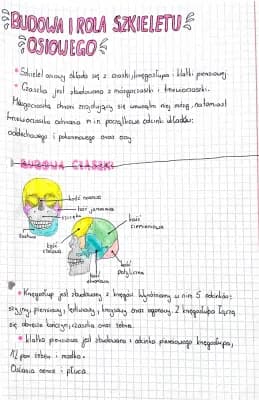 BUDOWA I ROLA SZKIELETU
OSIOWEGO
• Szkielet osiowy składa się z czaszki, kręgosłupa i klatki piersiowej.
• Czaszka jest zbudowana z mózgoczaszki i trzewioczaszki.
Mózgoczaszka chroni znajdujący się wewnątrz niej mózg, natomiast
trzewioczaszka ochrania m.in. początkowe odcinki układów:
oddechowego i pokarmowego oraz oczy.
BUDOWA CZASZKI
kość czołowa
kość jarzmowa
szczęka
żuchwa
kość
ciemieniowa
kość
skroniowa
kość
potyliczna
• Kręgosłup jest zbudowany z kręgów. Wyróżniamy w nim 5 odcinków:
szyjny, piersiowy, lędźwiowy, krzyżowy oraz ogonowy. Z kręgosłupa łączą
się obręcze kończyn, czaszka oraz żebra.
• Klatka piersiowa jest zbudowana z odcinka piersiowego kręgosłupa,
12 par żeber i mostka.
Osłania serce i płuca.